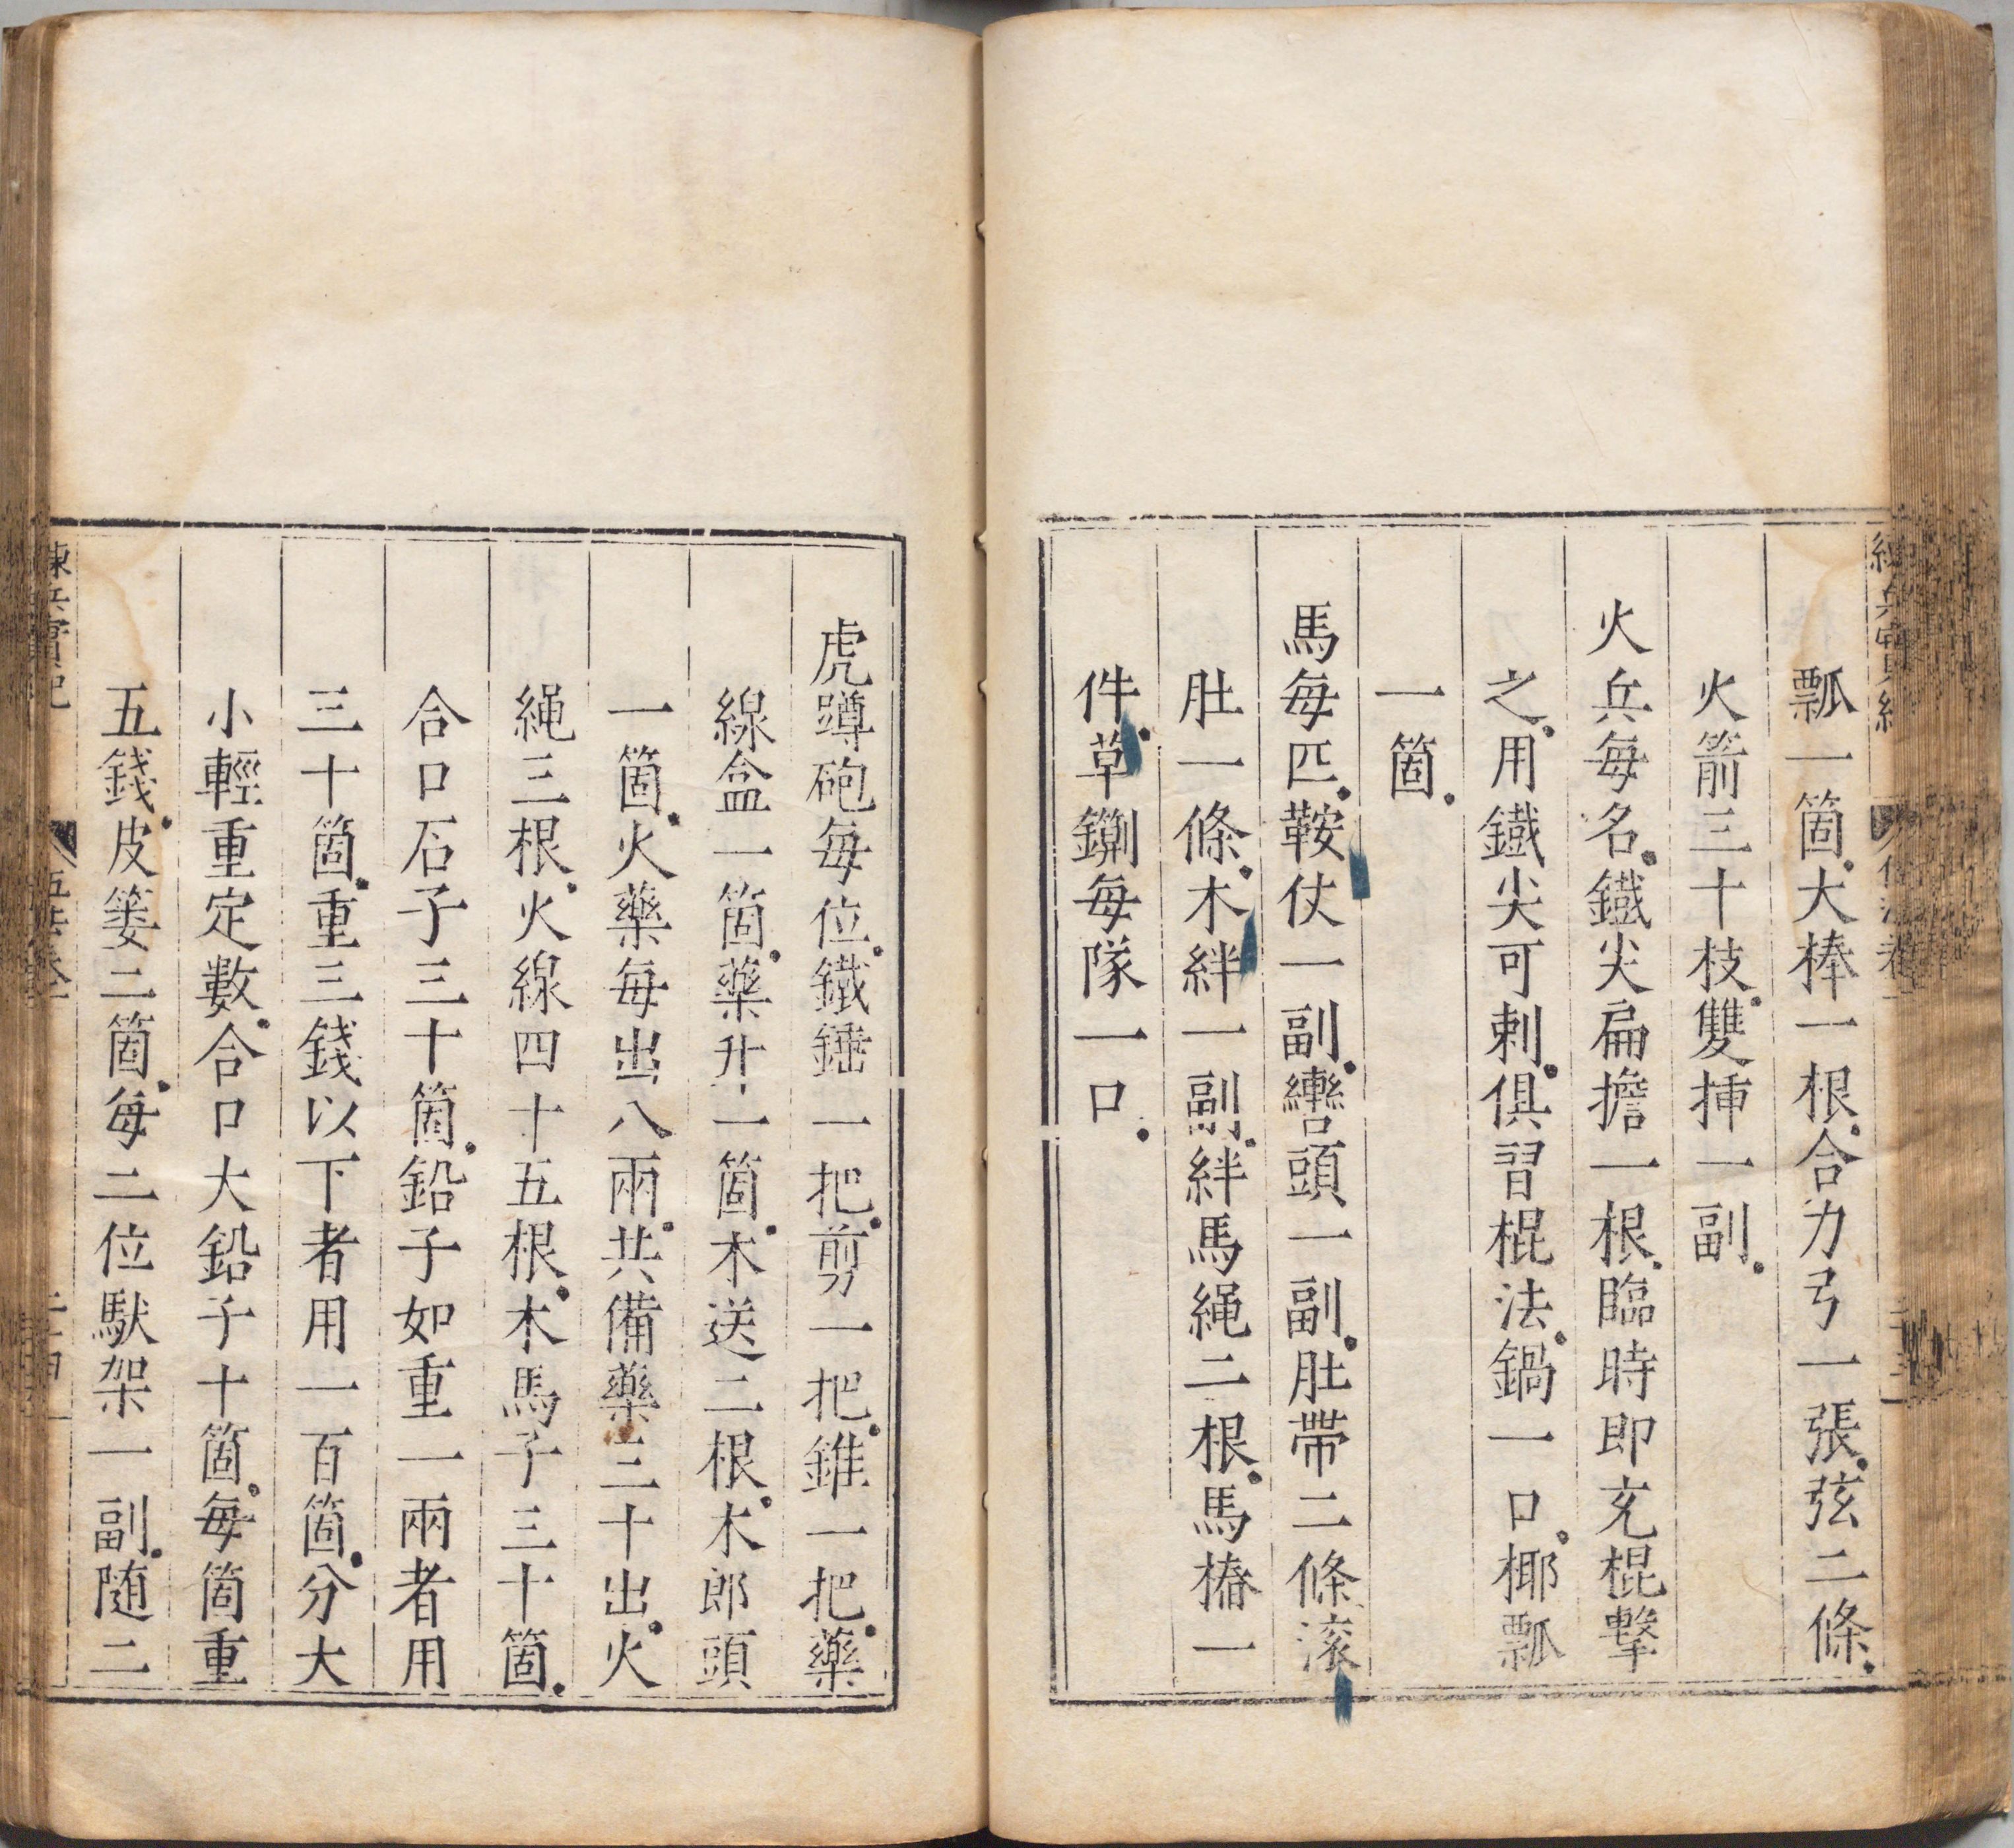 瓢一箇大棒一根合力弓一張弦二條
火箭三十枝雙揷一副
火兵每名鐵尖扁擔一根臨時即充棍擊
之用鐵尖可刺俱習棍法鍋一口椰瓢
一箇
馬每匹鞍仗一副轡頭一副肚帶二條滚
肚一條木絆一副絆馬繩二根馬樁一
件草鍘每隊一口
虎蹲砲每位鐵錘一把剪一把錐一把藥
線盒一箇藥升一箇木送二根木郎頭
一箇火藥每出八兩共備藥三十出火
繩三根火線四十五根木馬子三十箇
合口石子三十箇鉛子如重一兩者用
三十箇重三錢以下者用一百箇分大
小輕重定數合口大鉛子十箇每箇重
五錢皮簍二箇每二位馱架一副随二